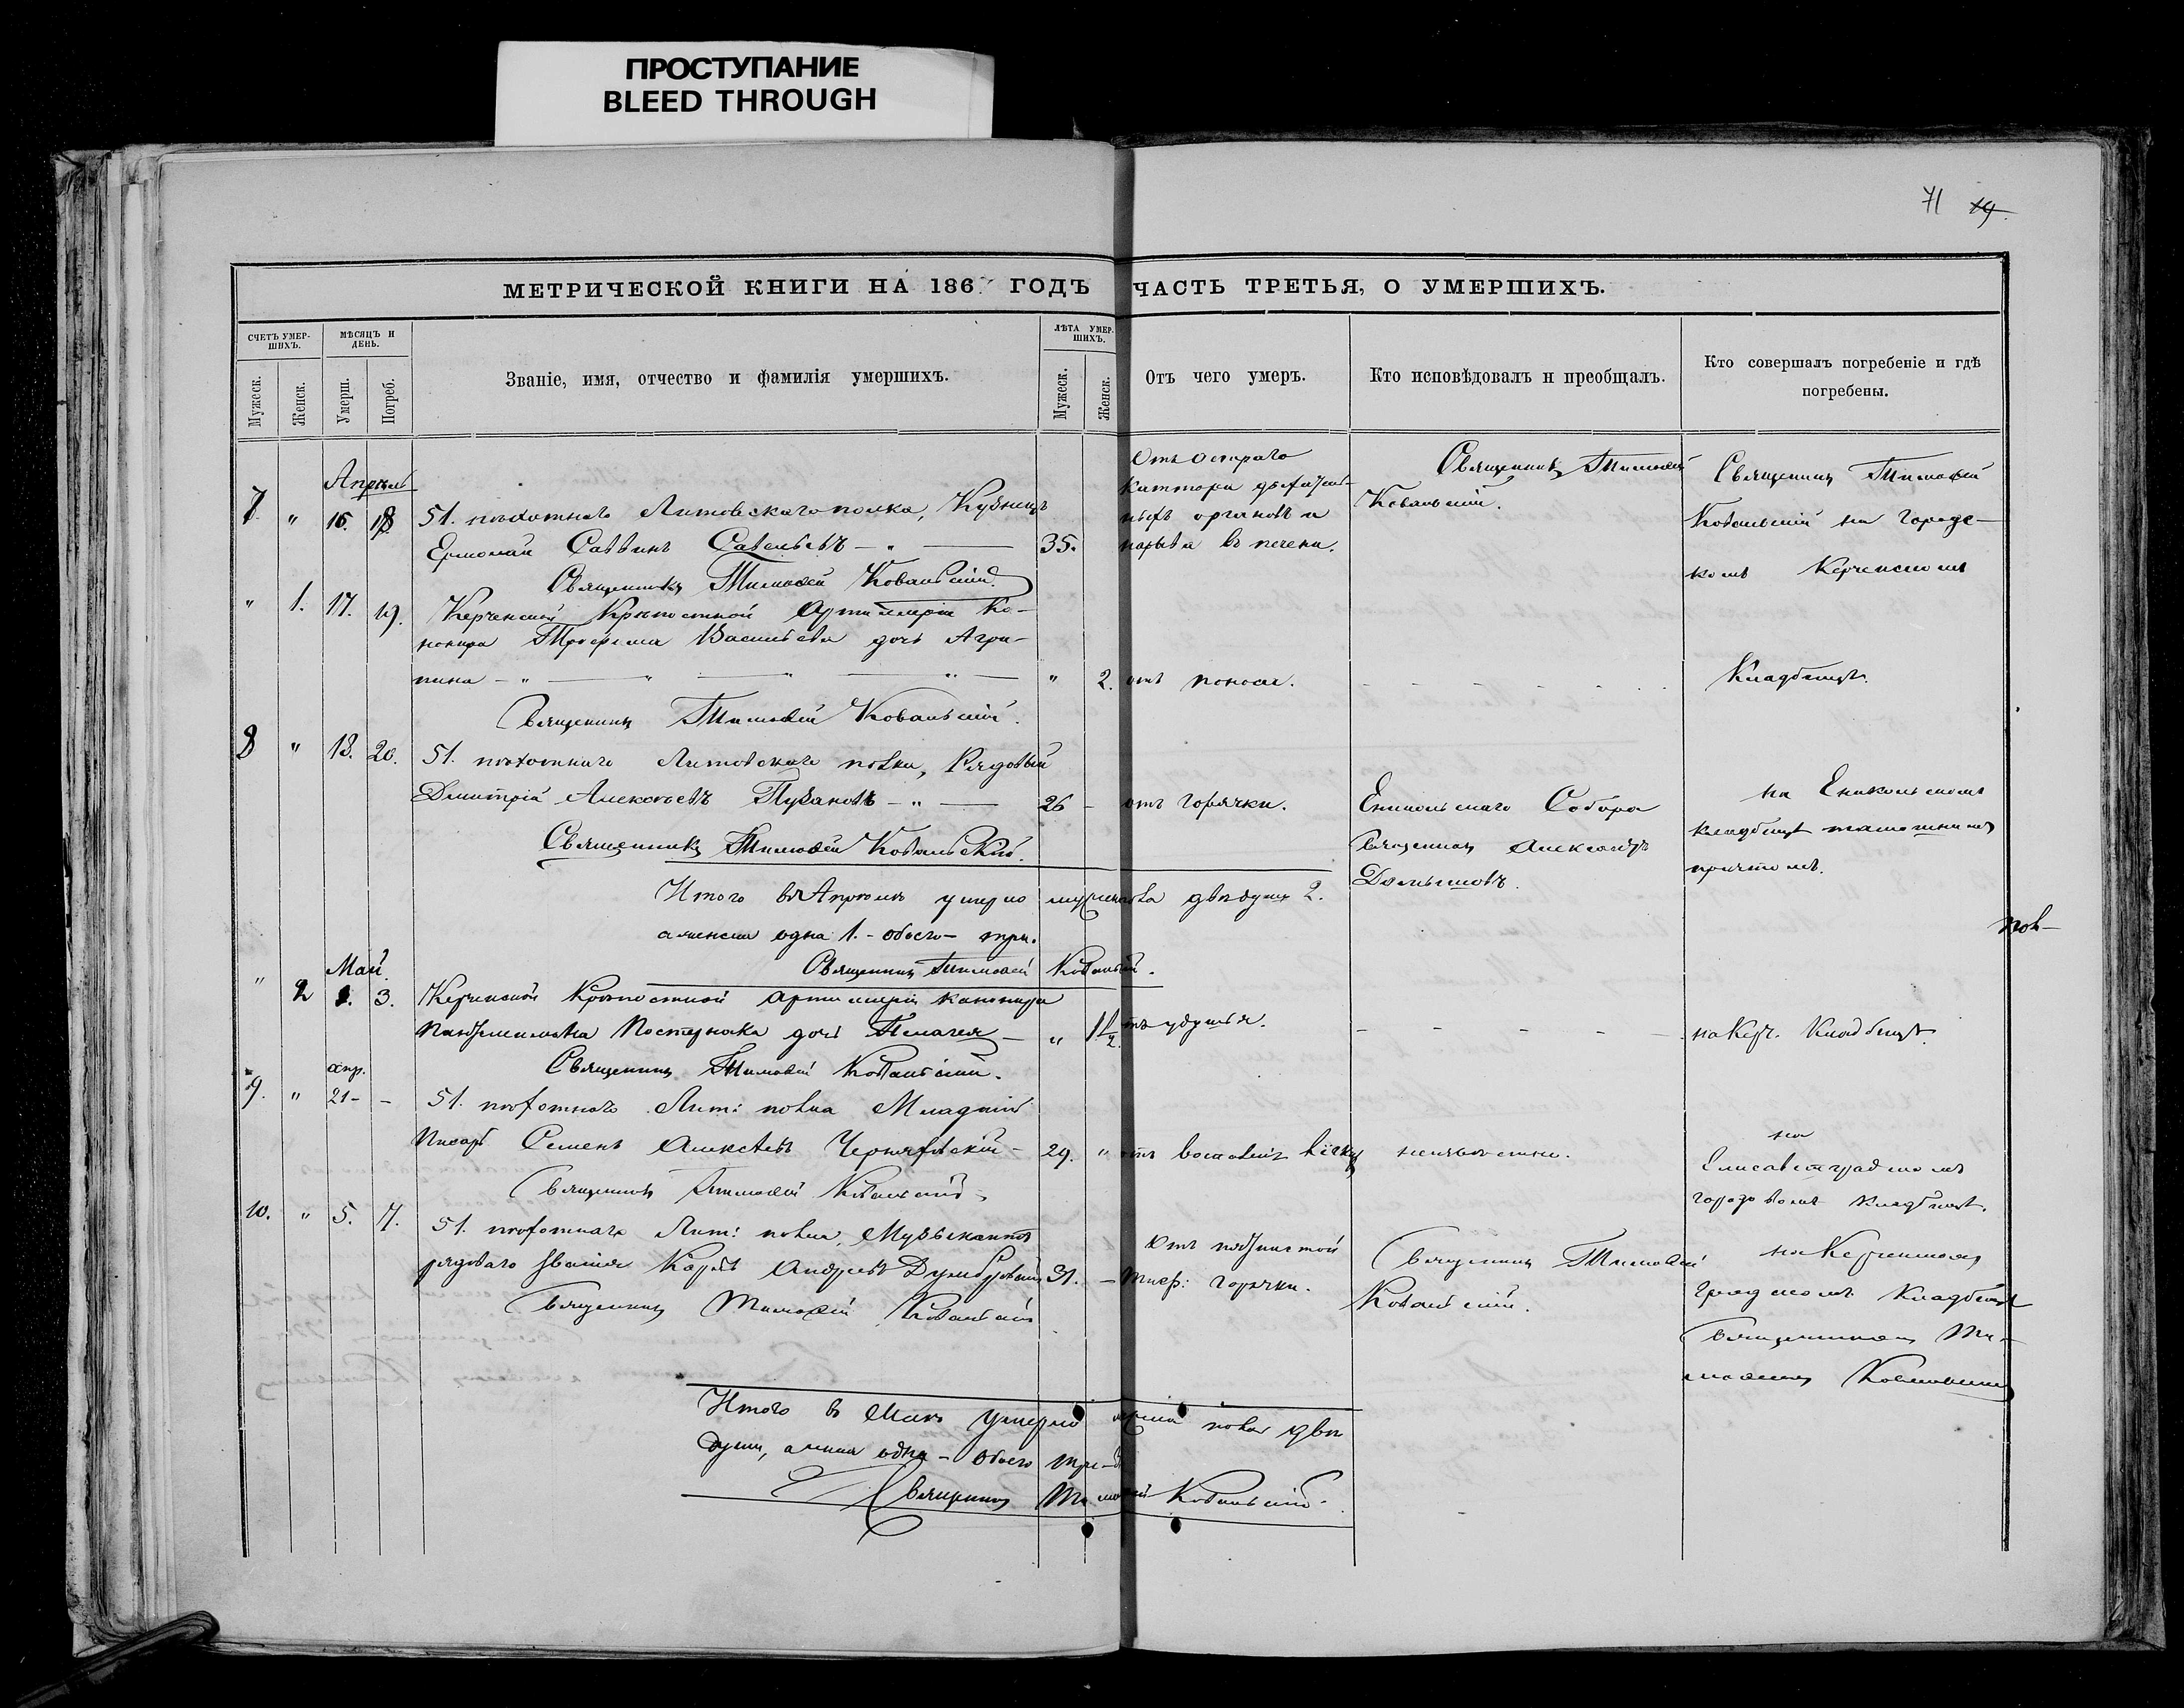 ПРОСТУПАНИЕ
BLEED THROUGH
71 19.
МЕТРИЧЕСКОЙ КНИГИ НА 186 ГОДЪ ЧАСТЬ ТРЕТЬЯ, О УМЕРШИХЪ.
СЧЕТЪ УМЕР-
ШИХЪ.
МѢСЯЦЪ И
ДЕНЬ.
ЛѢТА УМЕР-
ШИХЪ.
Мужеск.
Женск.
Умерш.
Погреб.
Званіе, имя, отчество и фамилія умершихъ.
Мужеск.
Женск.
Отъ чего умеръ.
Кто исповѣдовалъ и преобщалъ.
Кто совершалъ погребеніе и гдѣ
погребены.
Апрѣль
7. " 16. 18 51. пѣхотнаго Литовскаго полка, Кузнецъ
Ермолай Саввинъ Савельевъ — " — 35.
Отъ остраго
катарра дыхатель-
ныхъ органовъ и
нарыва въ печени.
Священникъ Тимофей
Ковальскій.
Священникъ Тимофей
Ковальскій на Городс-
комъ Керченскомъ
Кладбищѣ.
Священникъ Тимофей Ковальскій.
" 1. 17. 19. Керченской Крѣпостной Артиллеріи Ка-
нонира Трофима Васильева дочь Агри-
пина — " — " — " — " — " 2. отъ поноса.
Священникъ Тимофей Ковальскій.
8 " 18. 20. 51. пѣхотнаго Литовскаго полка, Рядовый
Дмитрій Алексѣевъ Пузановъ — " — 26 - отъ горячки.
Еникольскаго Собора
Священникъ Александръ
на Еникольскомъ
кладбищѣ тамошнимъ
причтомъ.
Священникъ Тимофей Ковальскій.
Итого въ Апрѣлѣ умерло мужеска двѣ души 2.
а женска одна 1. - обоего - три.
Священникъ Тимофей Ковальскій.
пол-
Май.
" 2 1. 3. Керченской Крѣпостной артиллеріи канонира
Пантелеимона Постернака дочь Пелагея — " 1 1/2.
на Керч. Кладбищѣ.
Священникъ Тимофей Ковальскій.
апр.
9. " 21 - - 51. пѣхотнаго Лит: полка Младшій
Писарь Семенъ Алексѣевъ Чернявскій - 29. "
неизвѣстно.
на
Елисаветградскомъ
городскомъ кладбищѣ.
Священникъ Тимофей Ковальскій.
10. " 5. 7. 51. пѣхотнаго Лит: полка, Музыкантъ
рядоваго званія Карлъ Андреевъ 31. -
Отъ
тиф: горячки.
Священникъ Тимофей
Ковальскій.
на Керченскомъ
Градскомъ Кладбищѣ
Священникомъ Ти-
мофеемъ Ковальскимъ
Священникъ Тимофей Ковальскій
Итого въ Маѣ умерло мужска пола двѣ
души, а женска одна - Обоего три -
Священникъ Тимофей Ковальскій.